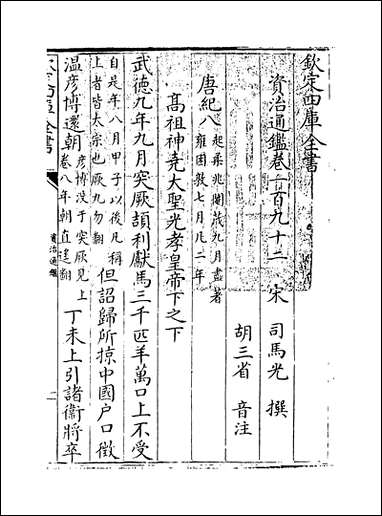 欽定四庫全書
資治通鑑卷一百九十二
宋 司馬光 撰
胡三省 音注
唐紀八
起柔兆閹茂九月盡著
雍困敦七月凡二年
高祖神堯大聖光孝皇帝下之下
武徳九年九月突厥頡利獻馬三千匹羊萬口上不受
自是年八月甲子以後凡稱
上者皆太宗也厥九勿翻
但詔歸所掠中國户口徵
温彦博還朝
彦博没于突厥見上
卷八年朝直遥翻
丁未上引諸衞將卒
資治通鑑